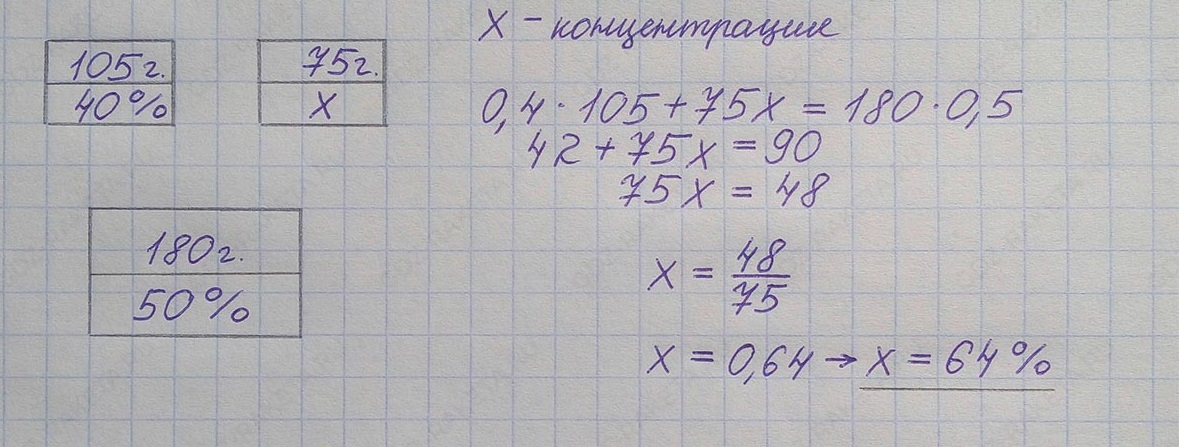 X - концентрация
105г.
75г.
40%
X
0,4·105+75X=180·0,5
42+75X=90
75X=48
180г.
50%
X=48/75
X=0,64→X=64%